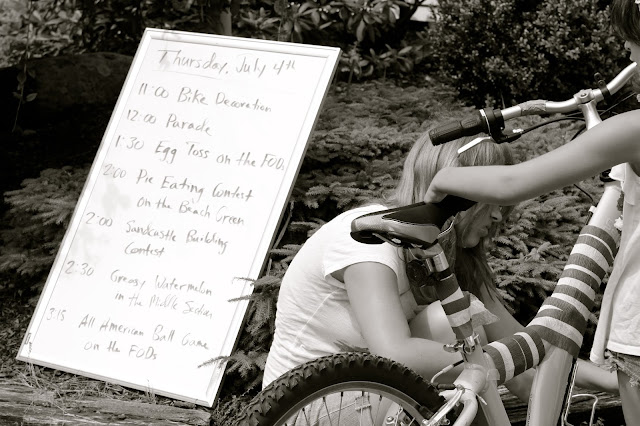 Thursday, July 4th
11:00 Bike Decoration
12:00 Parade
1:30 Egg Toss on the FODs
2:00 Pie Eating Contest
on the Beach Green
2:00 Sandcastle Building
Contest
2:30 Greasy Watermelon
in the Middle Section
3:15 All American Ball Game
on the FODs